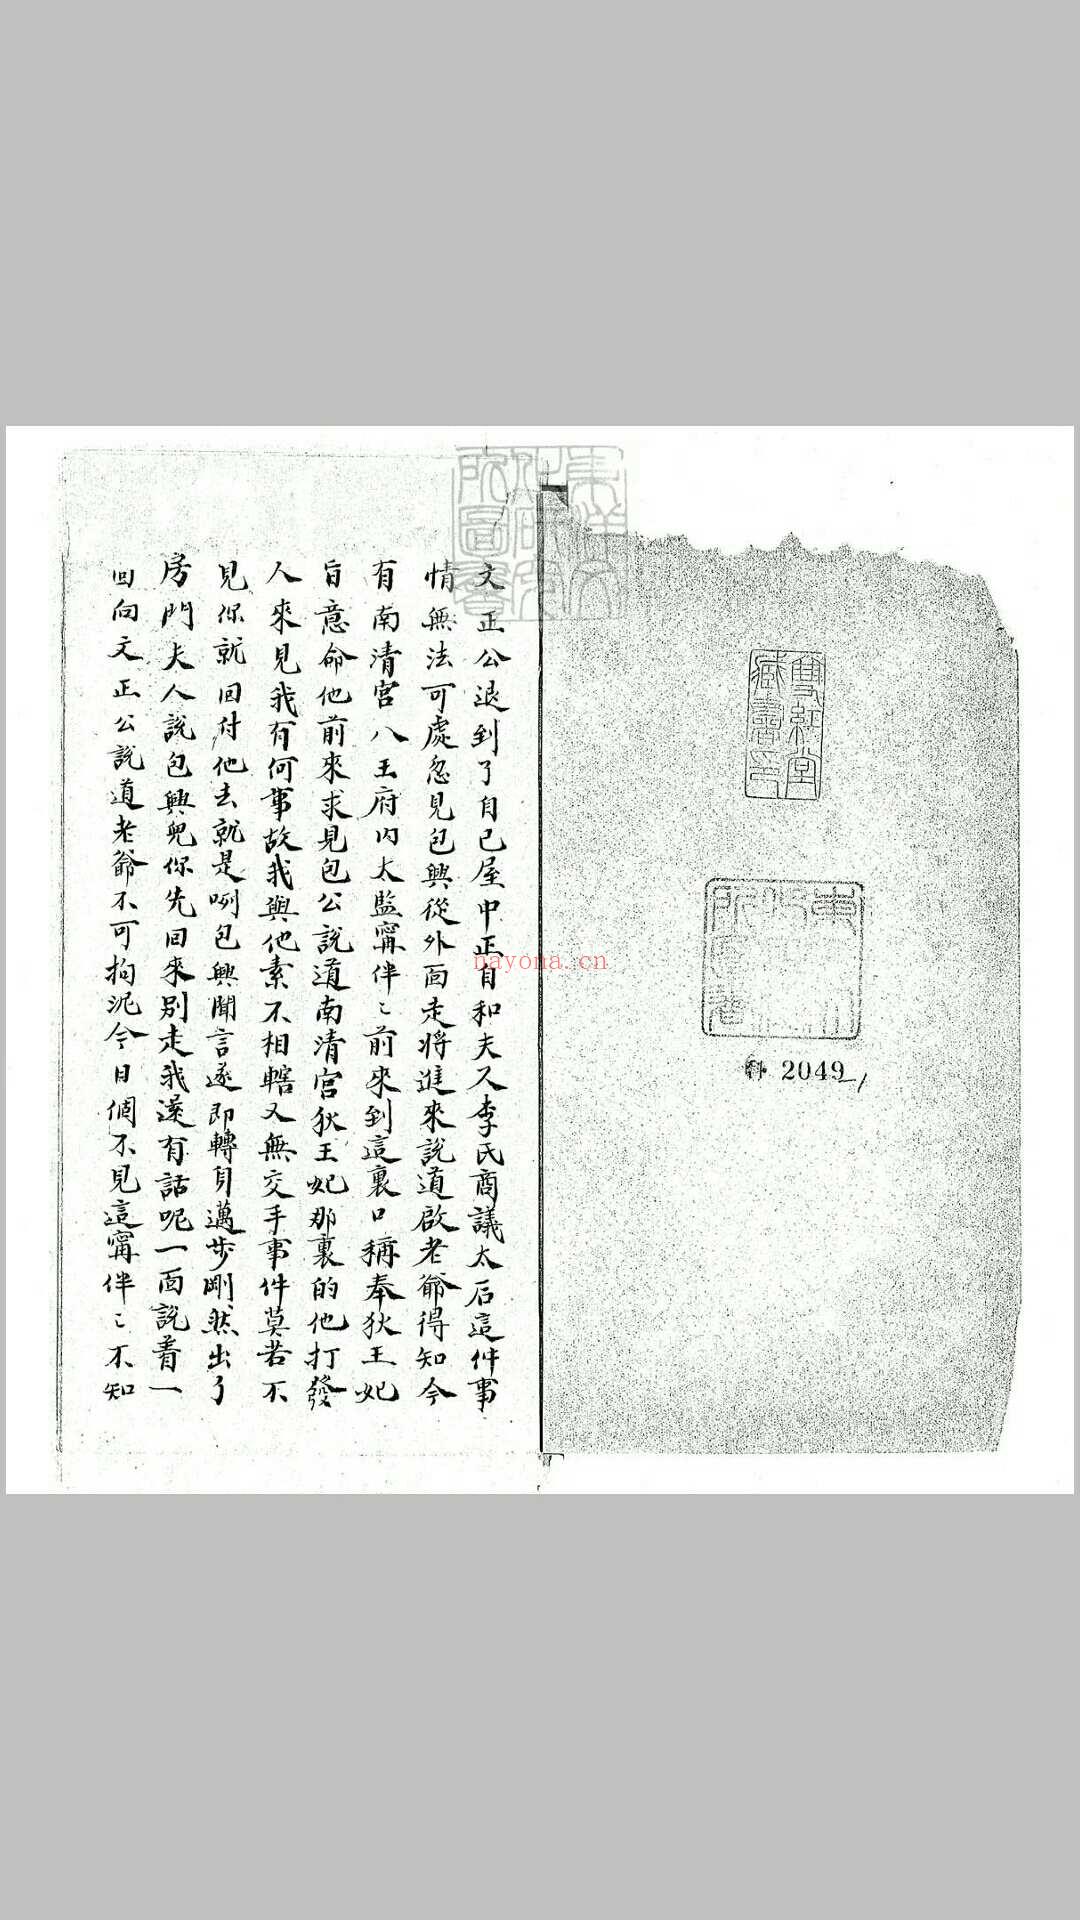 雙紅堂
藏書印
科 2049
文正公退到了自己屋中正自和夫人李氏商議太后這件事
情無法可處忽見包興從外面走將進來說道啟老爺得知今
有南清宮八王府內太監甯伴〻前來到這裏口稱奉狄王妃
旨意命他前來求見包公說道南清宮狄王妃那裏的他打發
人來見我有何事故我與他素不相轄又無交手事件莫若不
見你就回付他去就是咧包興聞言遂即轉身邁步剛然出了
房門夫人說包興兒你先回來別走我還有話呢一面說着一
回向文正公說道老爺不可拘泥今日個不見這甯伴〻不知
nayona.cn